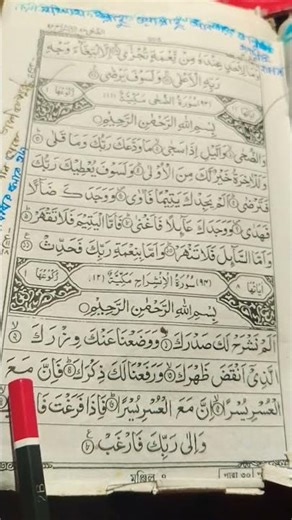 وَمَا لِأَحَدٍ عِنْدَهُ مِنْ نِّعْمَةٍ تُجْزٰى ۙ اِلَّا ابْتِغَآءَ وَجْهِ
رَبِّهِ الْاَعْلٰى ۚ وَلَسَوْفَ يَرْضٰى
(٩٣) سُوْرَةُ الضُّحٰى مَكِّيَّةٌ (١١)
بِسْمِ اللّٰهِ الرَّحْمٰنِ الرَّحِيْمِ
وَالضُّحٰى ۙ وَالَّيْلِ اِذَا سَجٰى ۙ مَا وَدَّعَكَ رَبُّكَ وَمَا قَلٰى ؕ
وَلَلْاٰخِرَةُ خَيْرٌ لَّكَ مِنَ الْاُوْلٰى ؕ وَلَسَوْفَ يُعْطِيْكَ رَبُّكَ
فَتَرْضٰى ؕ اَلَمْ يَجِدْكَ يَتِيْمًا فَاٰوٰى ۪ وَوَجَدَكَ ضَآلًّا
فَهَدٰى ۪ وَوَجَدَكَ عَآئِلًا فَاَغْنٰى ؕ فَاَمَّا الْيَتِيْمَ فَلَا تَقْهَرْ ؕ
وَاَمَّا السَّآئِلَ فَلَا تَنْهَرْ ؕ وَاَمَّا بِنِعْمَةِ رَبِّكَ فَحَدِّثْ
اٰيَاتُهَا ٨ (٩٤) سُوْرَةُ الْاِنْشِرَاحِ مَكِّيَّةٌ (١٢) رُكُوْعُهَا ١
بِسْمِ اللّٰهِ الرَّحْمٰنِ الرَّحِيْمِ
اَلَمْ نَشْرَحْ لَكَ صَدْرَكَ ۙ وَوَضَعْنَا عَنْكَ وِزْرَكَ ۙ
الَّذِيْۤ اَنْقَضَ ظَهْرَكَ ۙ وَرَفَعْنَا لَكَ ذِكْرَكَ ؕ فَاِنَّ مَعَ
الْعُسْرِ يُسْرًا ۙ اِنَّ مَعَ الْعُسْرِ يُسْرًا ؕ فَاِذَا فَرَغْتَ
وَاِلٰى رَبِّكَ فَارْغَبْ
মঞ্জিল ৭
পারা ৩০